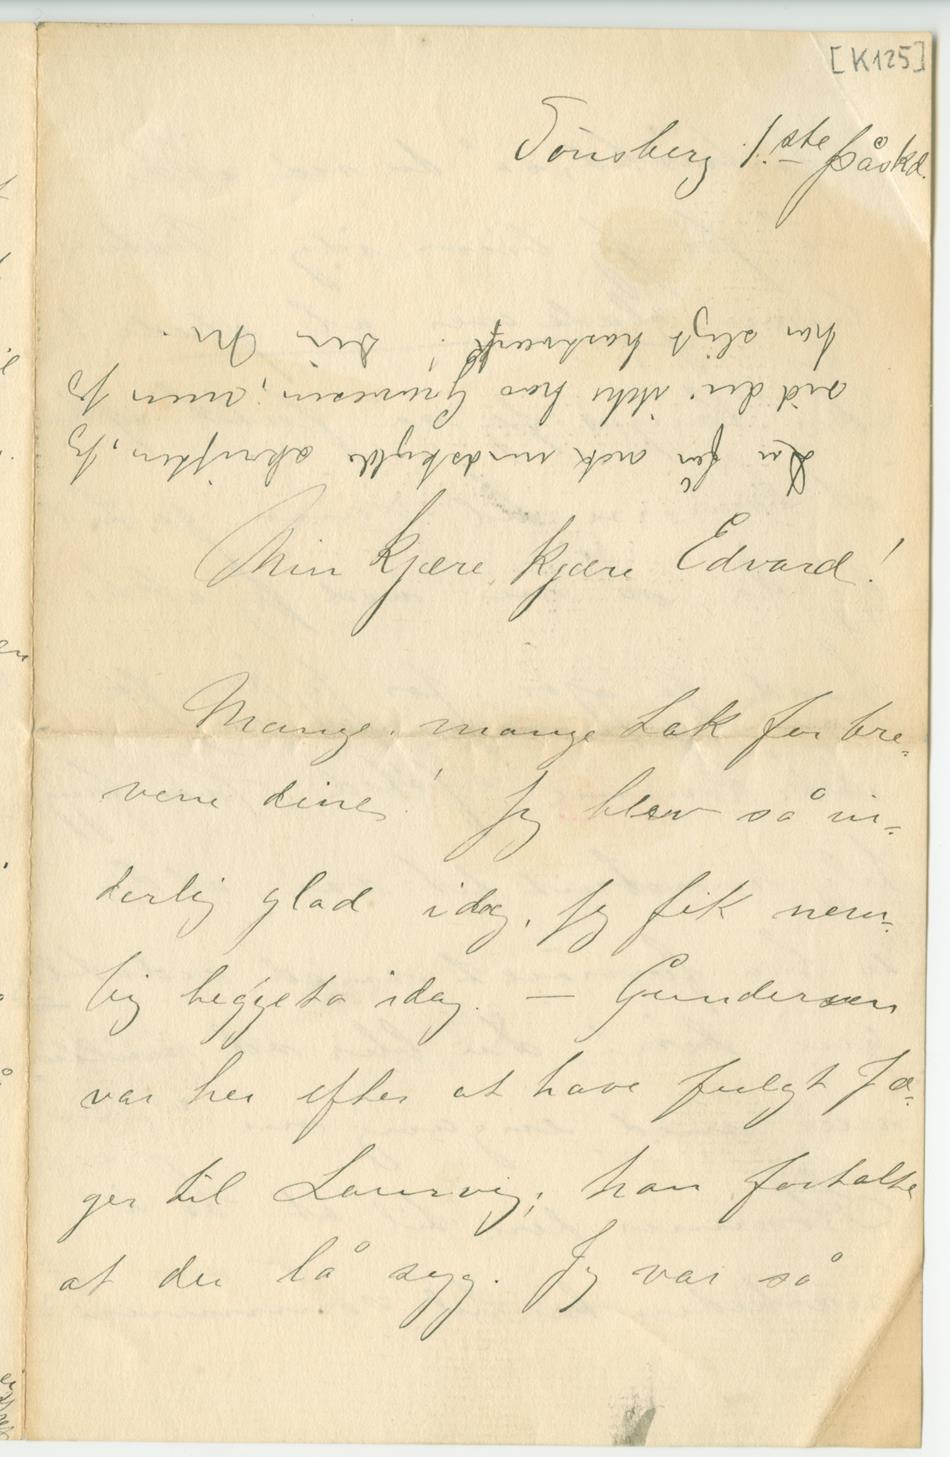 [K125]
Tønsberg 1.ste påskd.
Du får nok undskylde skriften, jeg
ved du ikke har Grumsen; men jeg
har sligt hastværk! Din M.
Min kjære, kjære Edvard!
Mange, mange tak for bre-
vene dine! Jeg blev så in-
derlig glad idag, jeg fik nem-
lig beggeto idag. — Gundersen
var her efter at have fulgt Jæ-
ger til Laurvig; han fortalte
at du lå syg. Jeg var så